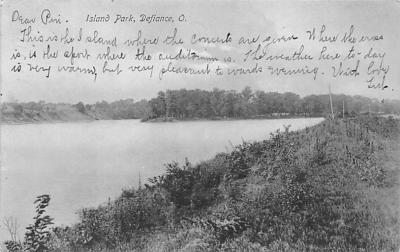 Dear Pri.
Island Park, Defiance, O.
This is the Island where the concerts are given Where the cross
is, is the spot where the auditorium is. The weather here to-day
is very warm, but very pleasant towards evening. With love